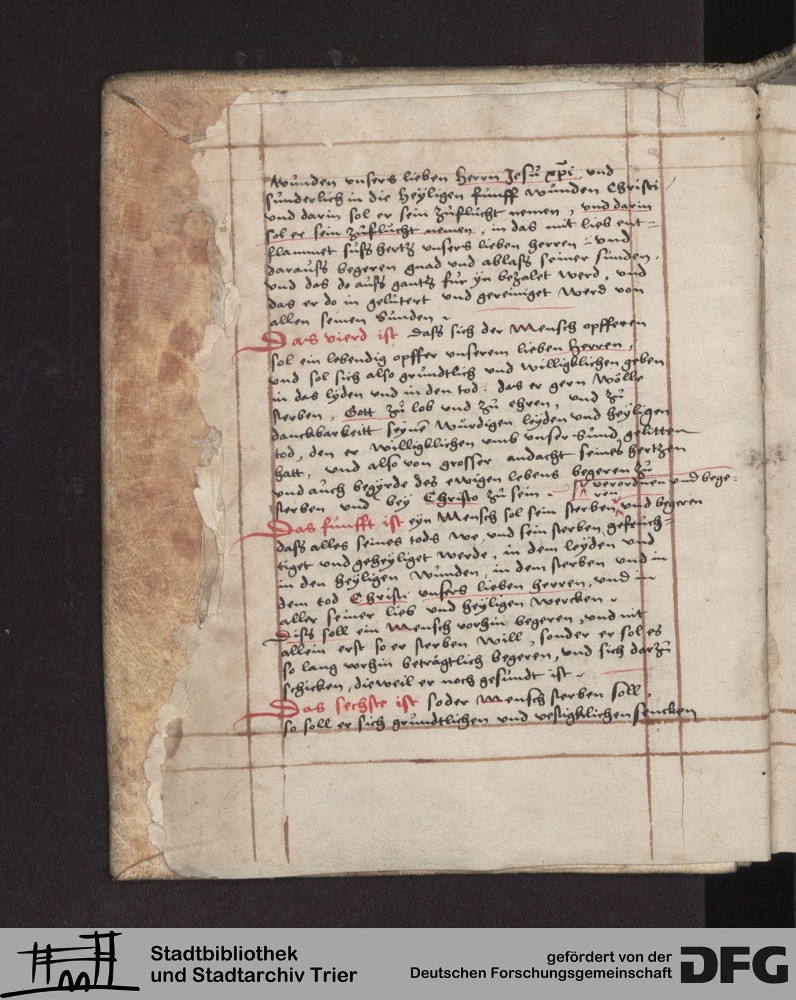 wunden unsers lieben Herrn Jesu xpi und
sunderlich in die heyligen funff wunden Christi
und darin sol er sein zuflucht nemen, und darin
sol er sein zuflucht nemen, in das mit lieb ent=
flammet süss hertz unsers lieben herren und
darauss begeren gnad und ablass seiner sunden,
und das do auss gantz fur yn bezalet werd, und
das er do in gelutert und gereiniget werd von
allen seinen Sunden
Das vierd ist dass sich der Mensch opfferen
sol ein lebendig opffer unserem lieben herren,
und sol sich also gruntlich und willigklichen geben
in das lyden und in den tod: das er gern wölle
sterben, Gott zu lob und zu ehren, und zu
danckbarkeitt seynes würdigen leyden und heyligen
tod, den er willigklichen umb unser Sund gelitten
hatt, und also von grosser andacht seines hertzen
und auch begyrde des ewigen lebens begeren zu
sterben und bey Christo zu sein
verordnen und bege=
ren
Das funfft ist eyn Mensch sol sein sterben und begeren
dass alles seines tods we, und sein sterben gefruch=
tiget und geheyliget werde, in dem leyden und
in den heyligen Wunden, in dem sterben und in
dem tod Christi unsers lieben herren, und in
aller seiner lieb und heyligen wercken.
Diss soll ein Mensch vorhin begeren, und nit
allein erst so er sterben will, sonder er sol es
so lang vorhin beträgtlich begeren, und sich darzu
schicken, dieweil er noch gesundt ist.
Das sechste ist so der Mensch sterben soll,
so soll er sich gruntlichen und vestigklichen sencken
Stadtbibliothek
und Stadtarchiv Trier
gefördert von der
Deutschen Forschungsgemeinschaft
DFG